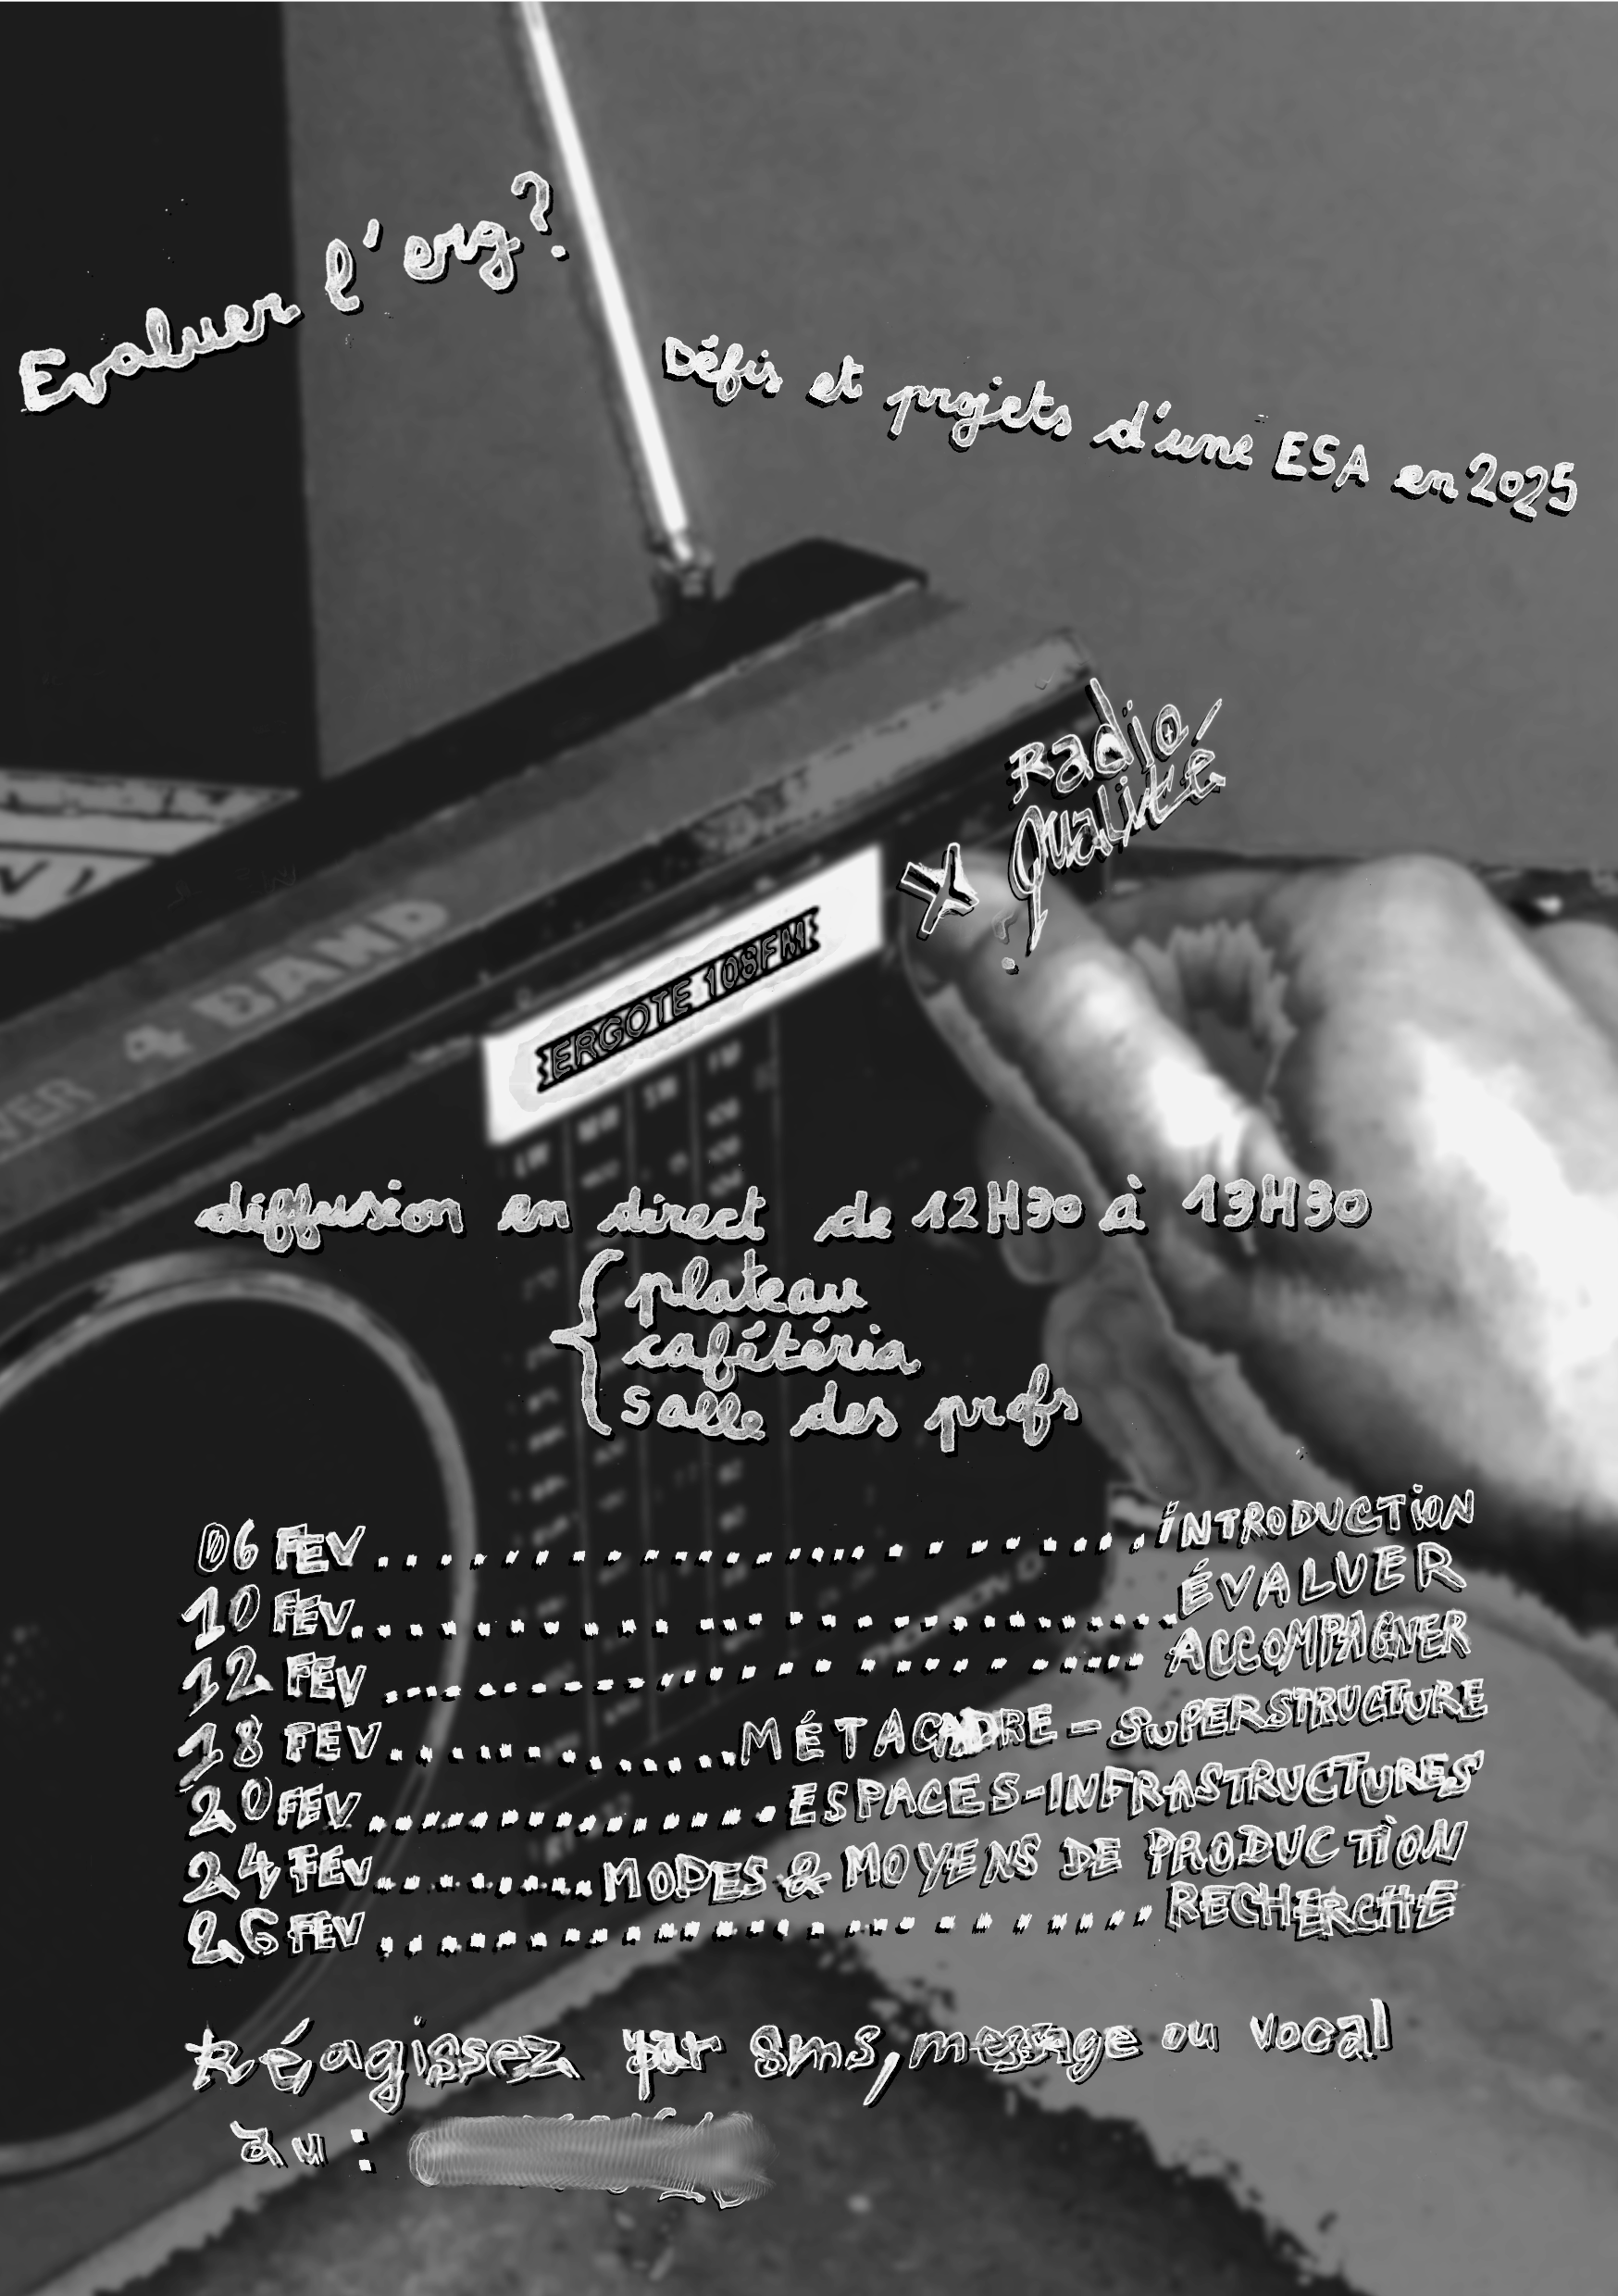 Evaluer l'erg?
Défis et projets d'une ESA en 2025
Radio
qualité
X
4 BAND
ERGOTE 108FM
LW MW SW FM
diffusion en direct de 12H30 à 13H30
{ plateau
cafétéria
salle des profs
06 FEV .......................... INTRODUCTION
10 FEV .......................... ÉVALUER
12 FEV .......................... ACCOMPAGNER
18 FEV ............ MÉTACADRE - SUPERSTRUCTURE
20 FEV ............... ESPACES-INFRASTRUCTURES
24 FEV ......... MODES & MOYENS DE PRODUCTION
26 FEV .......................... RECHERCHE
*Réagissez par sms, message ou vocal
au :